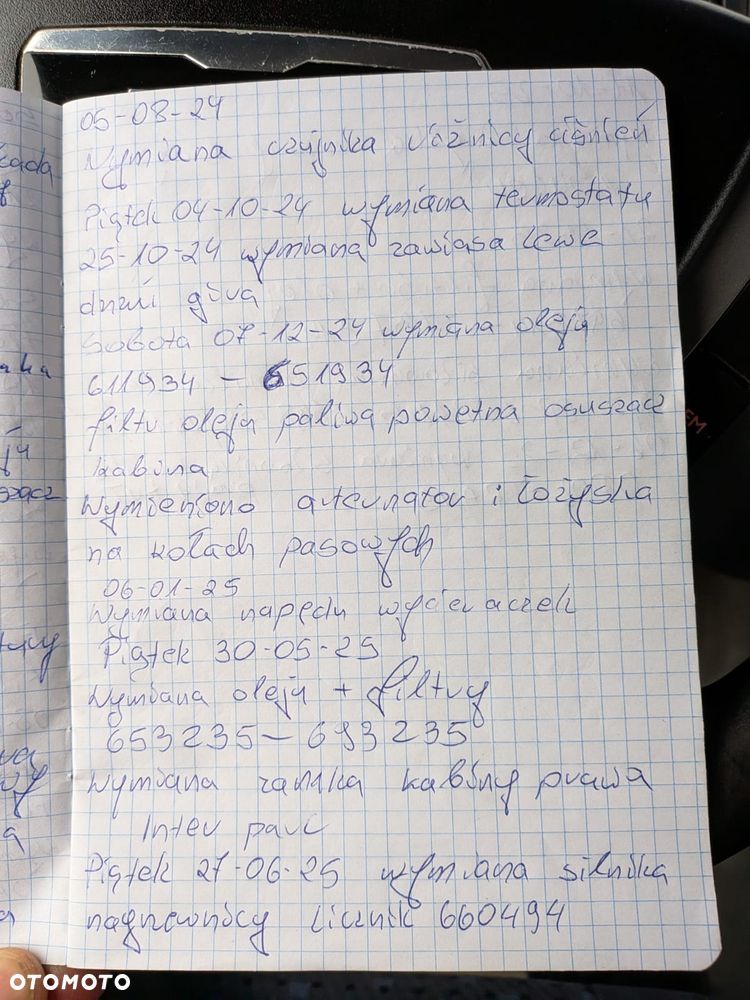 05-08-24
Wymiana czujnika różnicy ciśnień
Piątek 04-10-24 wymiana termostatu
25-10-24 wymiana zawiasa lewe
drzwi góra
Sobota 07-12-24 wymiana oleju
611934 - 651934
filtr oleju paliwa powetna osuszacz
kabina
Wymieniono arternator i łożyska
na kołach pasowych
06-01-25
Wymiana napędu wycieraczek
Piątek 30-05-25
Wymiana oleju + filtry
653235 - 693235
Wymiana zamka kabiny prawa
Inter parc
Piątek 27-06-25 wymiana silnika
nagrzewnicy licznik 660494
OTOMOTO